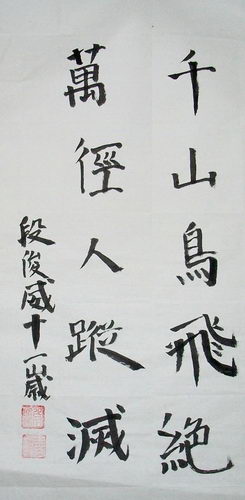 千山鳥飛絶
萬徑人蹤滅
段俊威十一歲